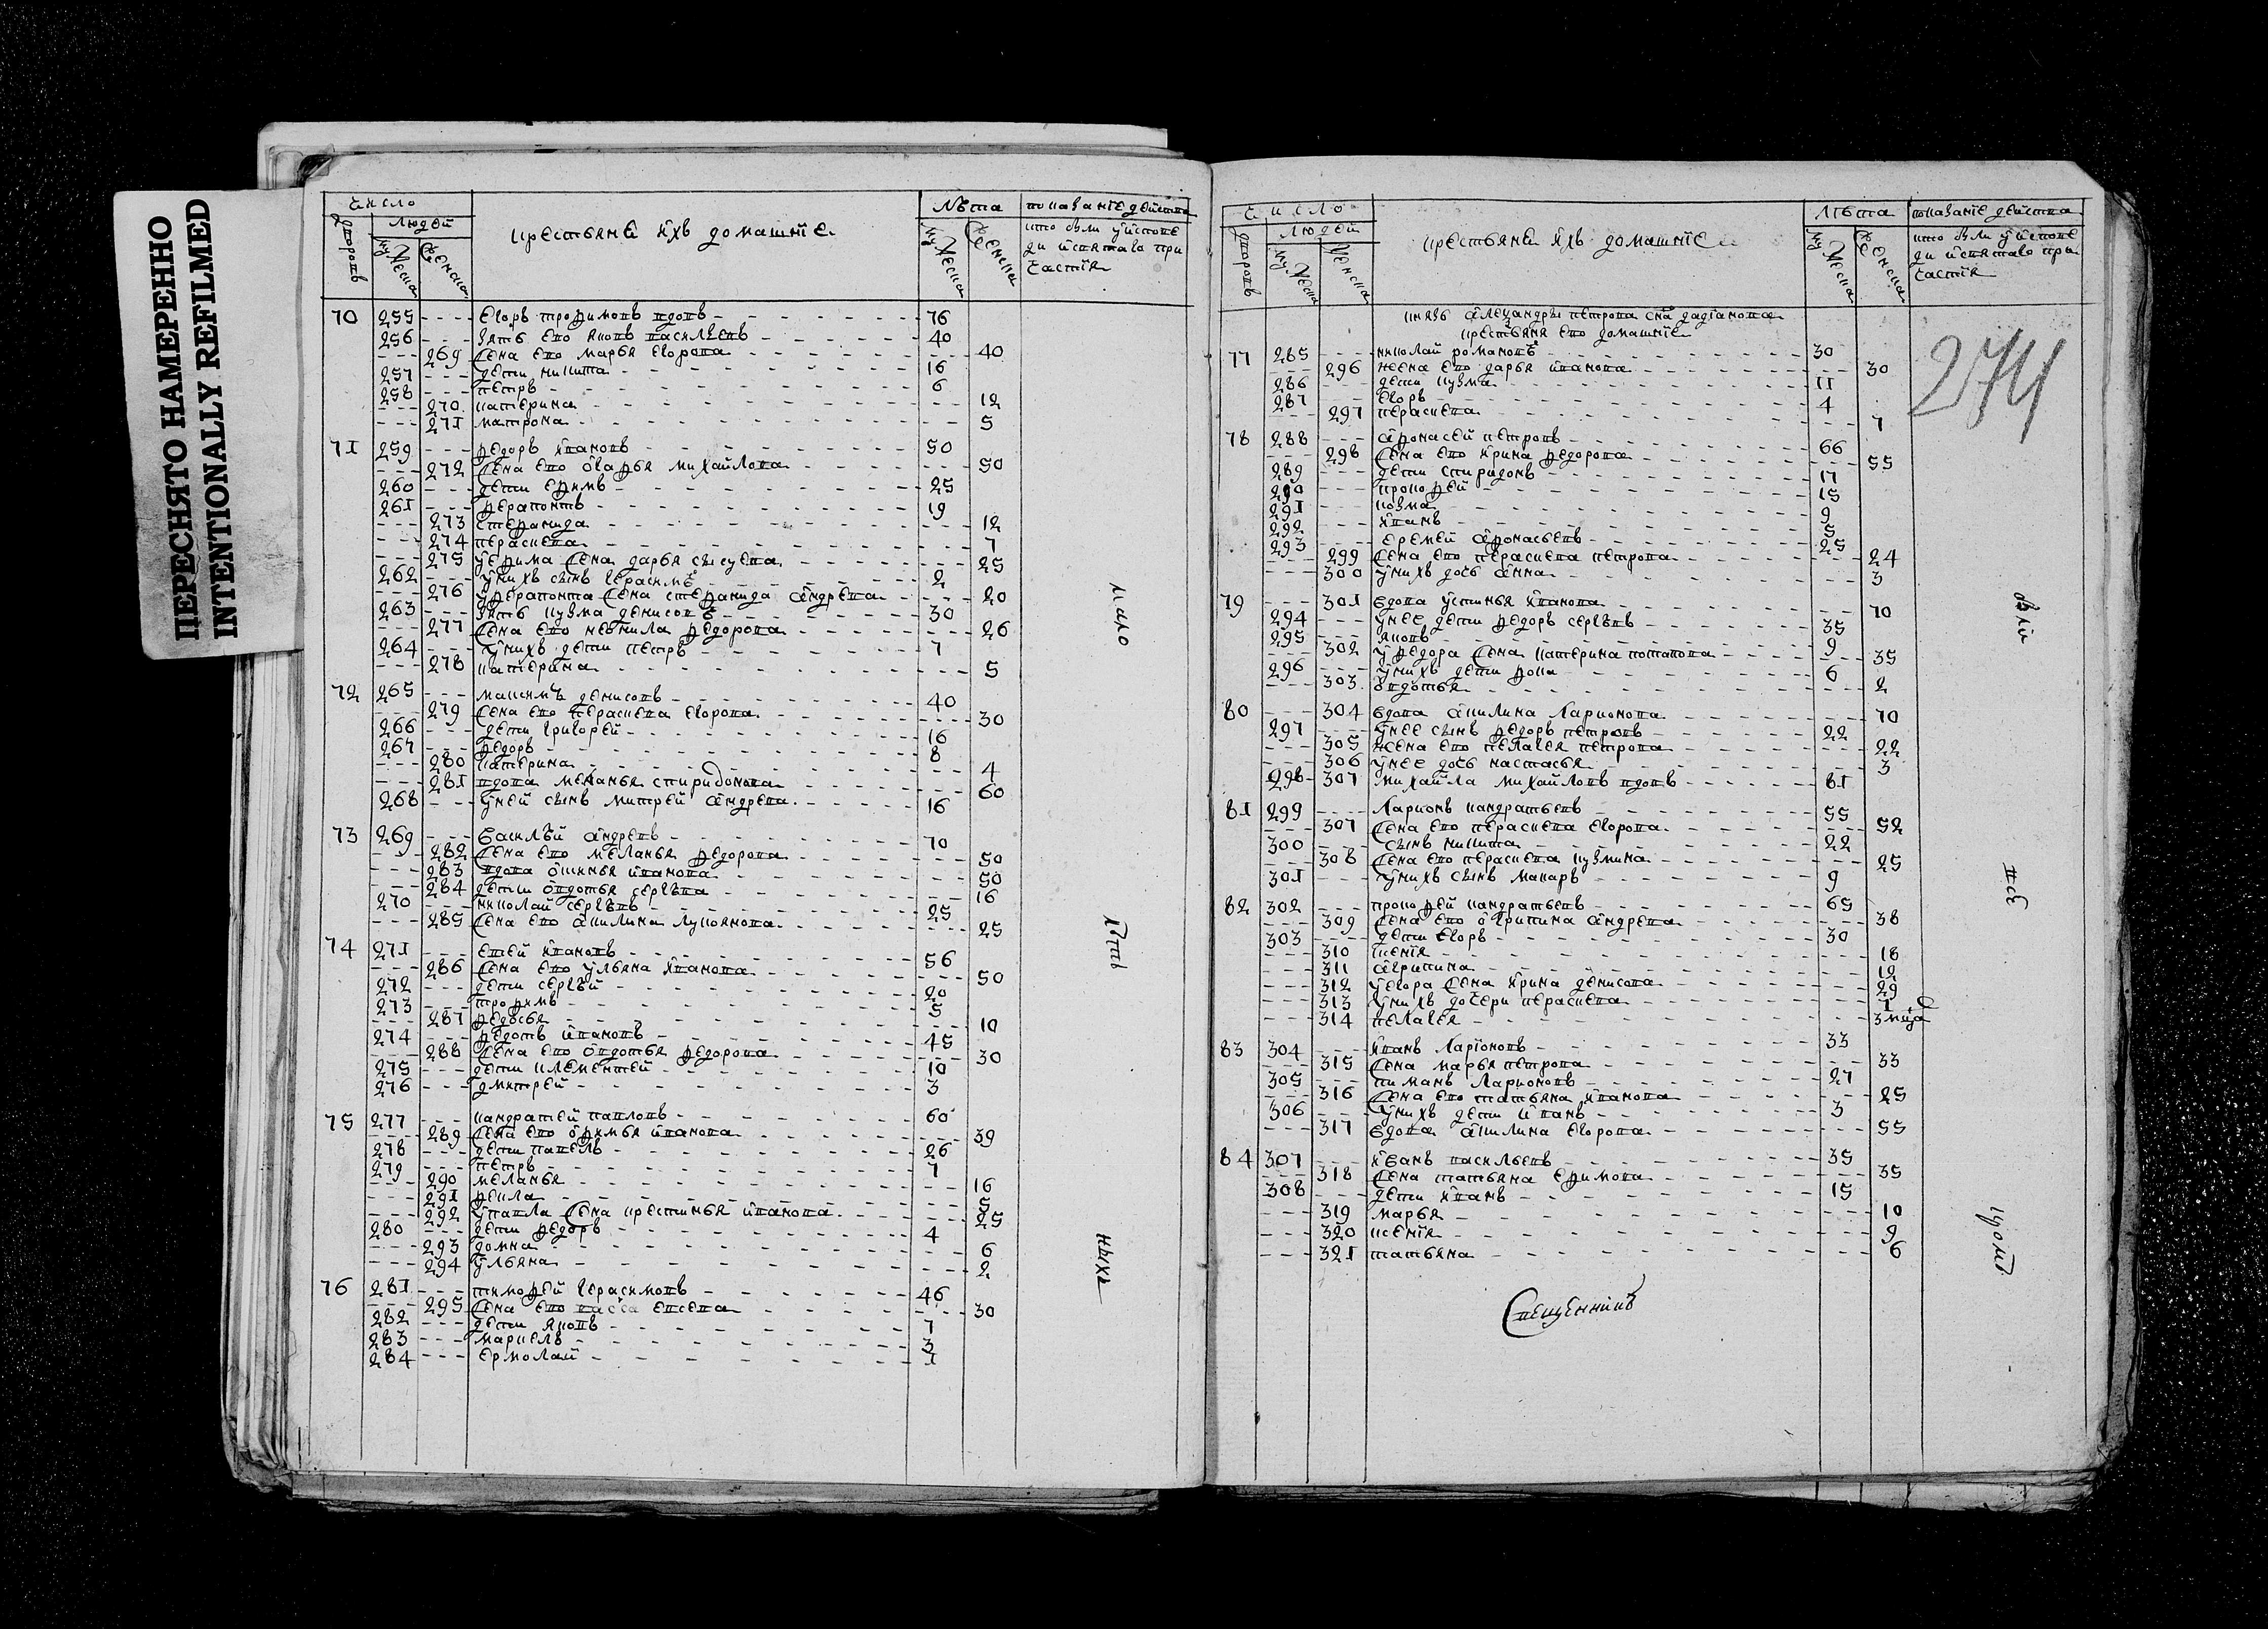 ПЕРЕСНЯТО НАМЕРЕННО
INTENTIONALLY REFILMED
число
дворовъ
людей
мужеска
женска
крестьяне ихъ домашние
лѣта
мужеска
женска
показание действа
кто были у исповеди и святаго причастия
70 255 Егоръ трофимовъ вдовъ 76
256 зять ево яковъ васильевъ 40
269 жена ево марья егорова 40
257 дети никита 16
258 петръ 6
270 катерина 12
271 матрона 5
71 259 федоръ ивановъ 50
272 жена ево огафья михайлова 50
260 дети ефимъ 25
261 ферапонтъ 19
273 стефанида 12
274 пераскева 7
275 у ефима жена дарья сысуева 25
262 у нихъ сынъ герасимъ 2
276 у ферапонта жена стефанида андрева 20
263 зять кузма денисовъ 30
277 жена ево неонила федорова 26
264 у нихъ дети петръ 7
278 катерина 5
72 265 максимъ денисовъ 40
279 жена ево пераскева егорова 30
266 дети григорей 16
267 федоръ 8
280 катерина 4
281 вдова меланья спиридонова 60
268 у ней сынъ митрей андрева 16
73 269 василѣй андревъ 70
282 жена ево меланья федорова 50
283 вдова офимья иванова 50
284 дети овдотья сергѣва 16
270 николай сергѣвъ 25
285 жена ево акилина лукоянова 25
74 271 евсей ивановъ 56
286 жена ево ульяна иванова 50
272 дети сергѣй 20
273 трофимъ 5
287 федосья 10
274 федотъ ивановъ 45
288 жена ево овдотья федорова 30
275 дети клементей 10
276 дмитрей 3
75 277 кандратей павловъ 60
289 жена ево офимья иванова 39
278 дети павелъ 26
279 петръ 7
290 меланья 16
291 фекла 5
292 у павла жена крестинья иванова 25
280 дети федоръ 4
293 домна 6
294 ульяна 2
76 281 тимофей герасимовъ 46
295 жена ево васса евсева 30
282 дети яковъ 7
283 маркелъ 3
284 ермолай 1
число
дворовъ
людей
мужеска
женска
крестьяне ихъ домашние
лѣта
мужеска
женска
показание действа
кто были у исповеди и святаго причастия
274
князь александры петрова сна дадианова
крестьяня ево домашние
77 285 николай романовъ 30
296 жена ево дарья иванова 30
286 дети кузма 11
287 егоръ 4
297 пераскева 7
78 288 афонасей петровъ 66
298 жена ево ирина федорова 55
289 дети спиридонъ 17
290 прокофей 15
291 козма 9
292 иванъ 5
293 еремей афонасьевъ 25
299 жена ево пераскева петрова 24
300 у нихъ дочь анна 3
79 301 вдова устинья иванова 70
294 у нее дети федоръ сергѣвъ 35
295 яковъ 9
302 у федора жена катерина потапова 35
296 у нихъ дети фока 6
303 овдотья 2
80 304 вдова акилина ларионова 70
297 у нее сынъ федоръ петровъ 22
305 жена ево пелагея петрова 22
306 у нее дочь настасья 3
298 307 михайла михайловъ вдовъ 81
81 299 ларионъ кандратьевъ 55
307 жена ево пераскева егорова 52
300 сынъ никита 22
308 жена ево пераскева кузмина 25
301 у нихъ сынъ макаръ 9
82 302 прокофей кандратьевъ 65
309 жена ево огрипина андрева 38
303 дети егоръ 30
310 ксения 18
311 агрипина 12
312 у егора жена ирина денисова 29
313 у нихъ дочери пераскева 1
314 пелагея 3 мца
83 304 иванъ ларионовъ 33
315 жена марья петрова 33
305 пиманъ ларионовъ 27
316 жена ево татьяна иванова 25
306 у нихъ дети иванъ 3
317 вдова акилина егорова 55
84 307 иванъ васильевъ 35
318 жена татьяна ефимова 35
308 дети иванъ 15
319 марья 10
320 ксения 9
321 татьяна 6
Священникъ